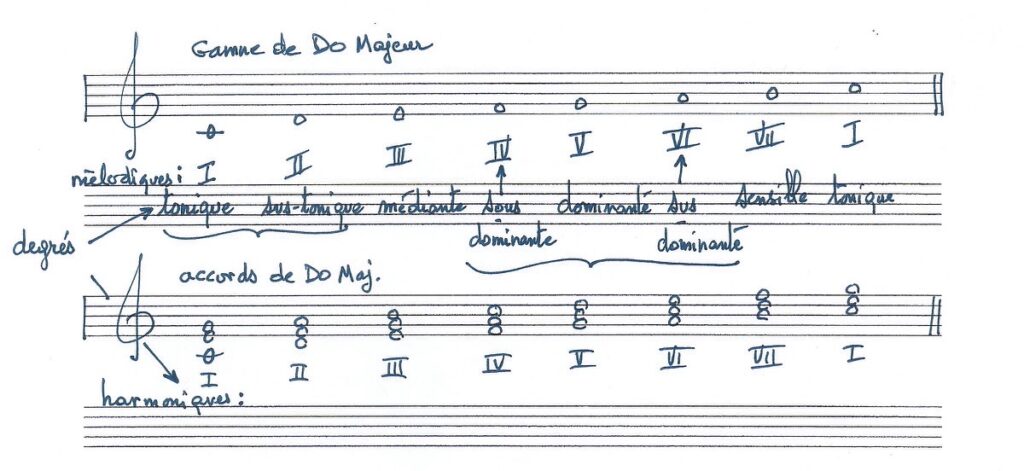 Gamme de Do Majeur
I II III IV V VI VII I
mélodiques :
tonique sus-tonique médiante sous dominante sus sensible tonique
dominante dominante
degrés
accords de Do Maj.
I II III IV V VI VII I
harmoniques :